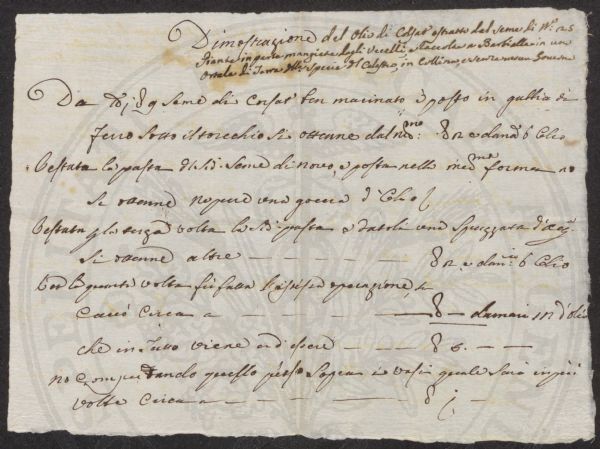 Dimostrazione del Olio di Colsat estratto dal seme di N.º 125
Piante in parte mangiate dagli Uccelli e raccolse a Barbialla in un
Ortale di Terra della specie d'Alberese, in Collina, e senza verun
Da seme di Colsat ben macinato e posto in gabbia di
ferro sotto il torchio si ottenne dal med.mo: Olio
Pestata la pasta di d.º seme di nuovo, e posta nella med.ma forma no
si ottenne neppure una goccia d'Olio
Pestata p la terza volta la d.ª pasta e datoli una spruzzata d'acq.
si ottenne altre — — — — — — Olio
Ed la quarta volta fu fatta l'istessa operazione, e
cavò circa a — — — — — — danari d'olio
che in tutto viene ad essere — — — — 6 — —
no computando quello perso sopra i vasi quale sarà in più
volte circa a — — — — —